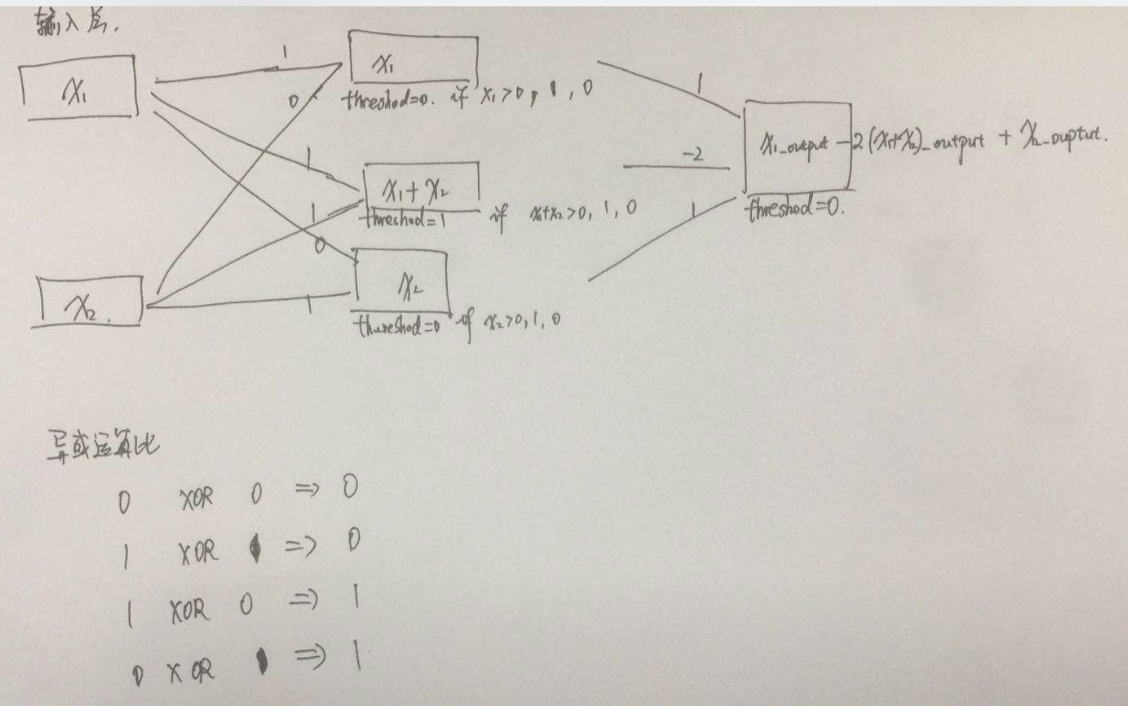 输入层.
x₁
1
0
x₁
threshod=0. if x₁>0, 1, 0
1
1
x₁+x₂
threshod=1 if x₁+x₂>0, 1, 0
0
x₂.
1
x₂
thureshod=0 if x₂>0, 1, 0
1
-2
1
x₁_output -2(x₁+x₂)_output + x₂_ouptut.
threshod=0.
0 XOR 0 => 0
1 XOR 1 => 0
1 XOR 0 => 1
0 XOR 1 => 1